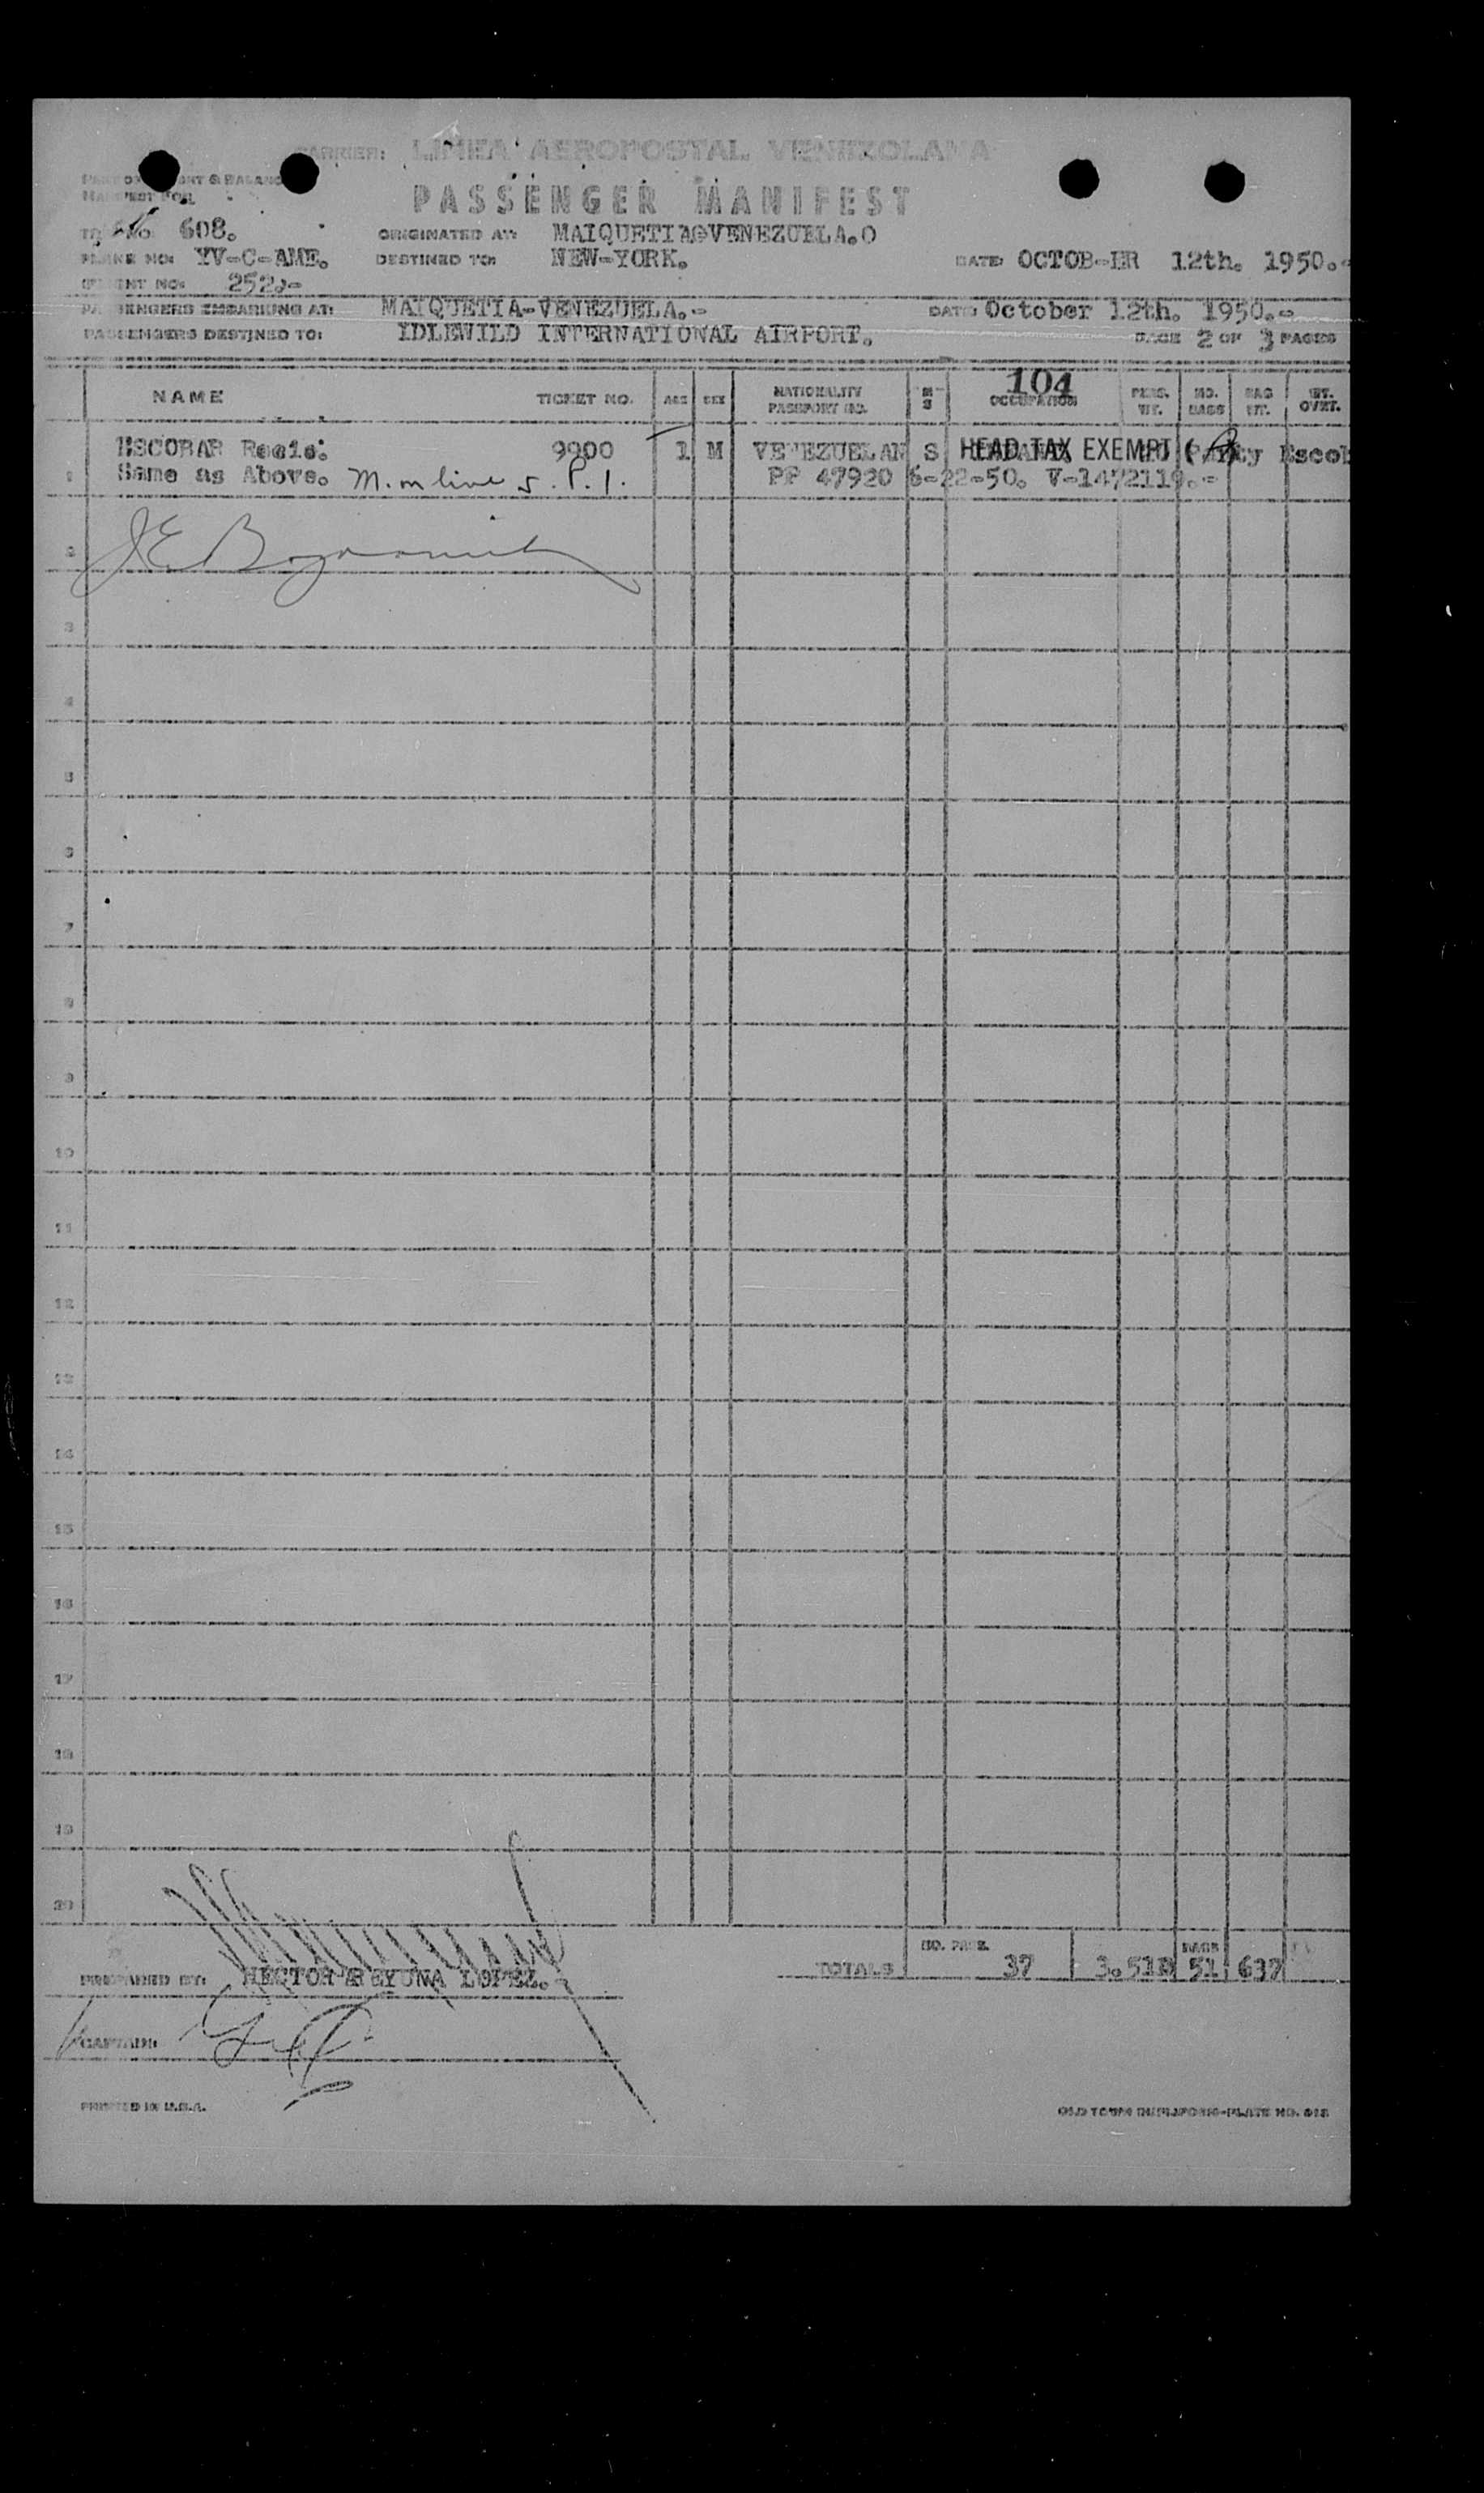 CARRIER: LINEA AEROPOSTAL VENEZOLANA
PASSENGER MANIFEST
608. ORIGINATED AT: MAIQUETIA@VENEZUELA.O
PLANE NO: YV-C-AME. DESTINED TO: NEW-YORK. DATE: OCTOB-ER 12th. 1950.-
252.-
PASSENGERS EMBARKING AT: MAIQUETIA-VENEZUELA.- DATE: October 12th. 1950.-
PASSENGERS DESTINED TO: IDLEWILD INTERNATIONAL AIRPORT. PAGE 2 OF 3 PAGES
104
NAME TICKET NO. AGE SEX NATIONALITY PASSPORT NO. M S OCCUPATION PERS. WT. NO. BAGS BAG WT. WT. OVRT.
ESCOBAR 9900 1 M VENEZUELAN S HEAD TAX EXEMPT ( Party Escob
1 Same as Above. PP 47920 6-22-50. V-1472119.-
2
3
4
5
6
7
8
9
10
11
12
13
14
15
16
17
18
19
20
PREPARED BY: HECTOR REYUNA LOPEZ. TOTALS NO. PASS. 37 3.518 BAGS 51 637
CAPTAIN:
PRINTED IN U.S.A. OLD TOWN DUPLIFORM-PLATE NO.